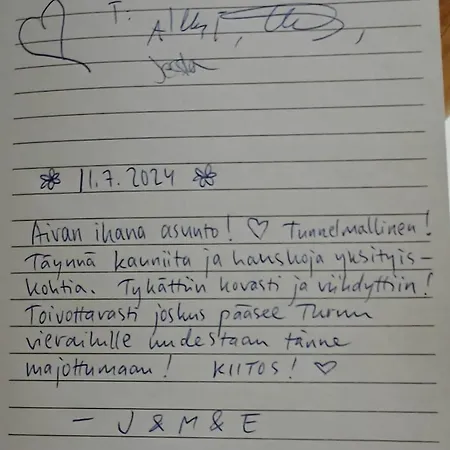 T:
Jesta
11.7.2024
Aivan ihana asunto! ♡ Tunnelmallinen!
Täynnä kauniita ja hauskoja yksityis-
kohtia. Tykättiin kovasti ja viihdyttiin!
Toivottavasti joskus pääsee Turun
vierailulle uudestaan tänne
majoittumaan! KIITOS! ♡
– J & M & E